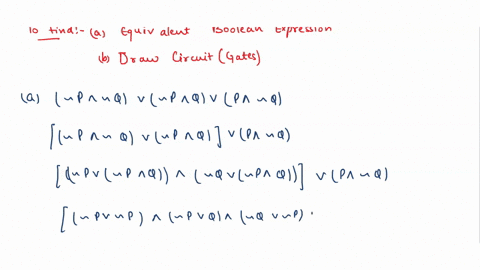 To find:- (a) Equivalent Boolean Expression
(b) Draw Circuit (Gates)
(a) (~P ∧ ~Q) ∨ (~P ∧ Q) ∨ (P ∧ ~Q)
[(~P ∧ ~Q) ∨ (~P ∧ Q)] ∨ (P ∧ ~Q)
[(~P ∨ (~P ∧ Q)) ∧ (~Q ∨ (~P ∧ Q))] ∨ (P ∧ ~Q)
[(~P ∨ ~P) ∧ (~P ∨ Q) ∧ (~Q ∨ ~P)